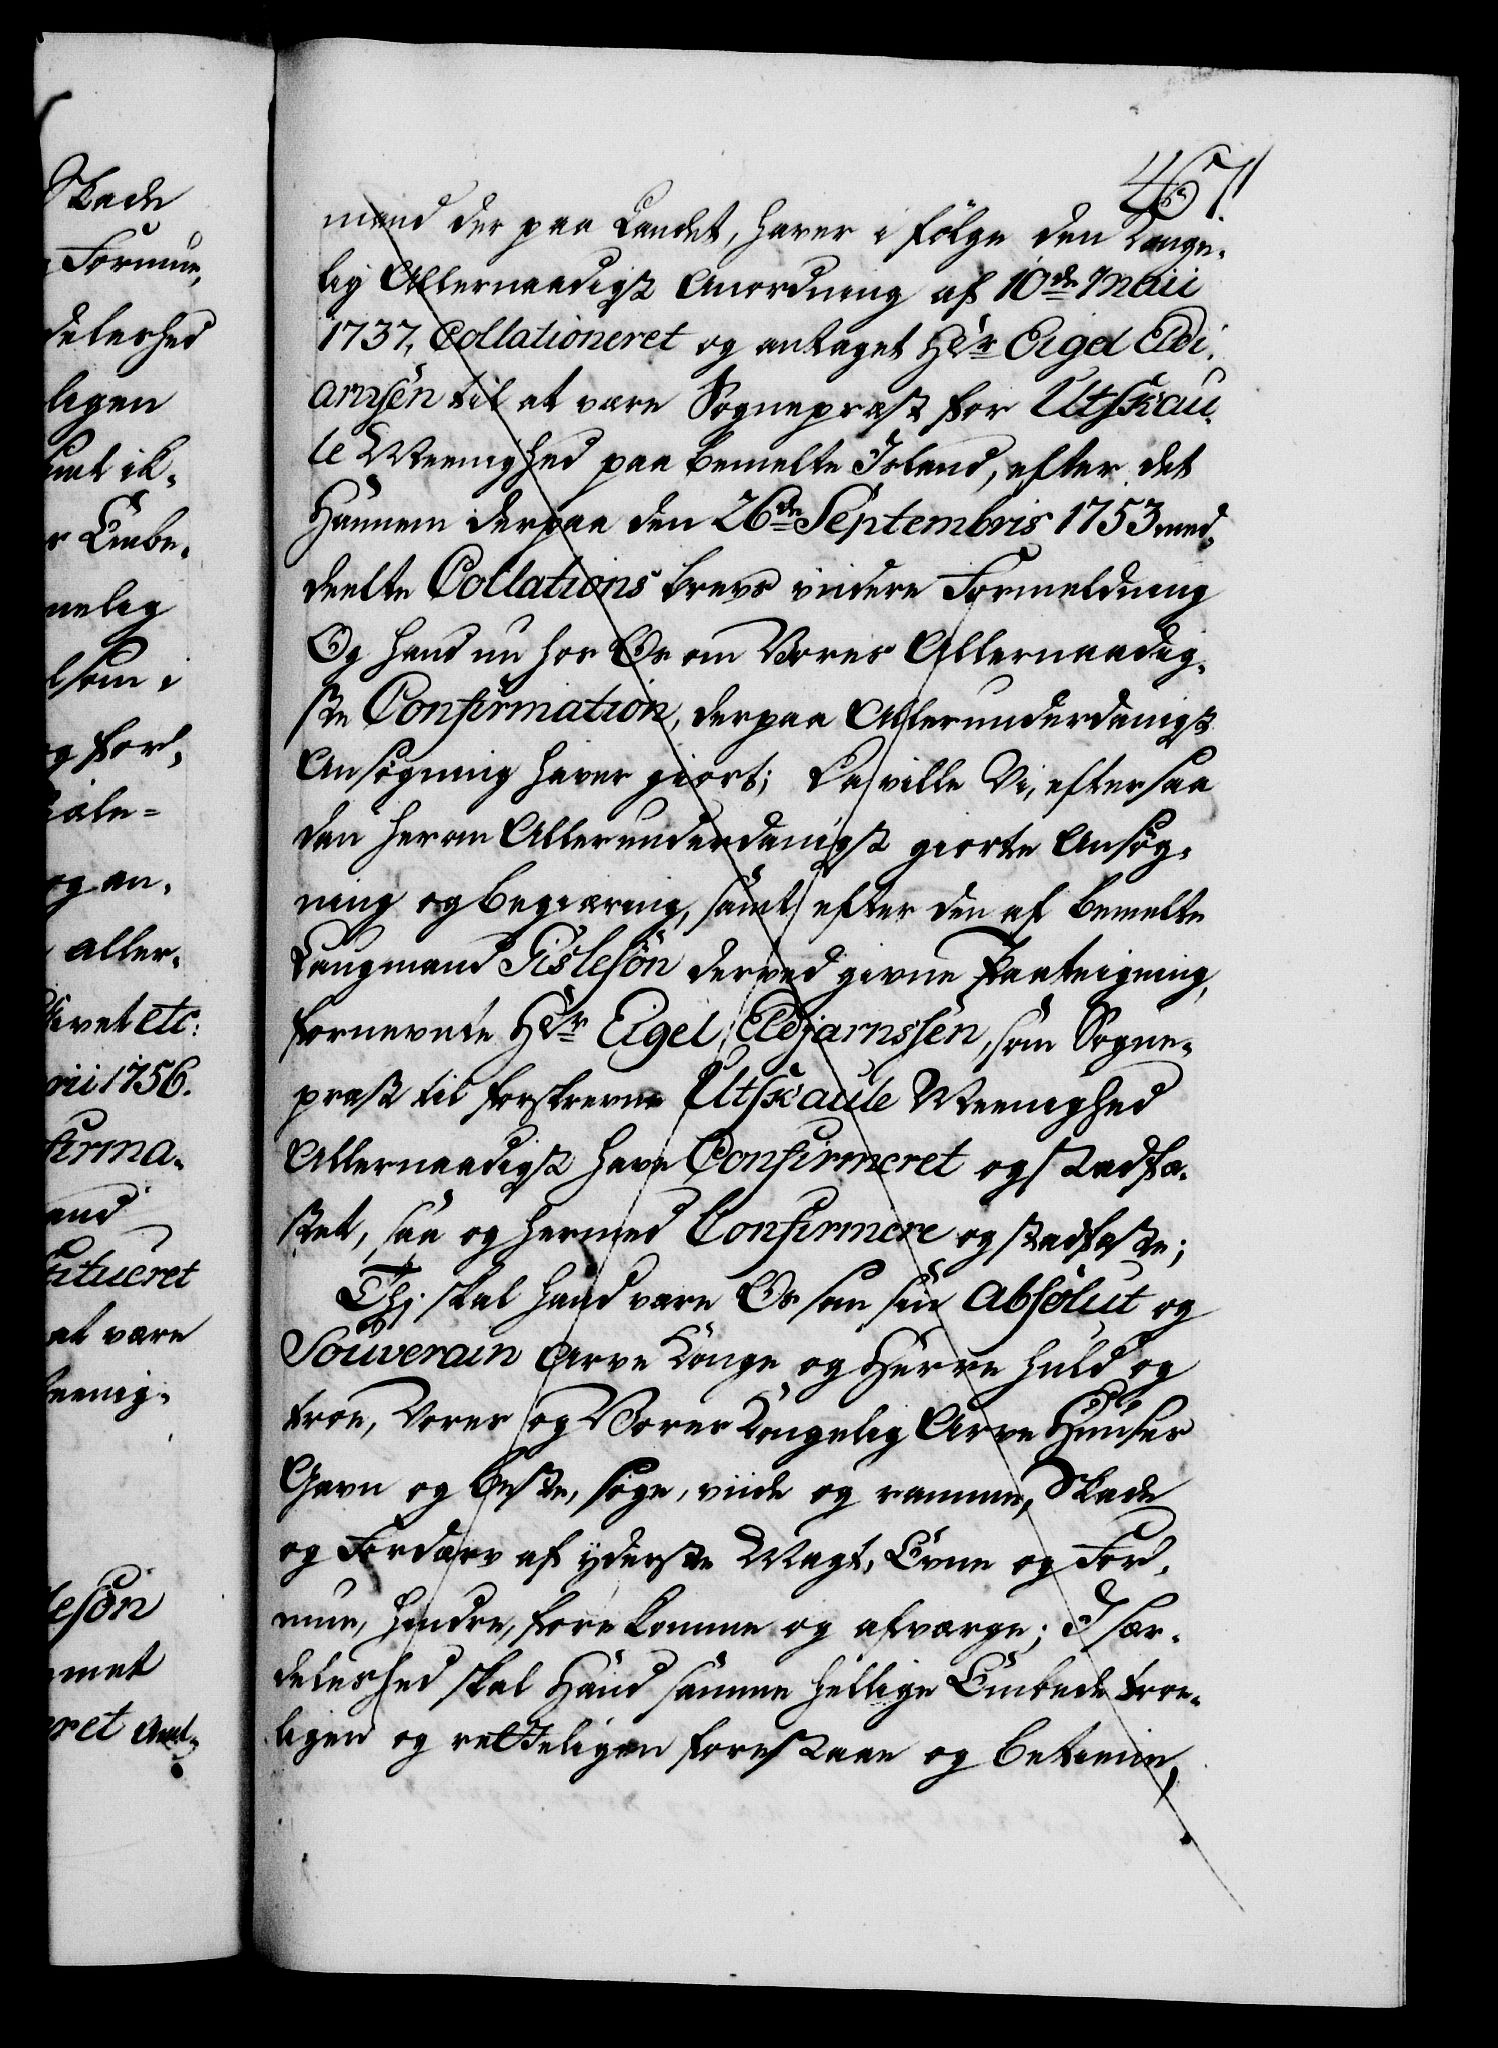 Skade
Formue,
deleshed
ligen
samt ik-
r Embe-
nelig
lsom i
og for-
og an-
aller-
Skrivet etc:
rii 1756.
firma-
and
stitueret
at være
meenig-
leson
met
ret Amt-
467.
mand der paa Landet, haver i Følge den Konge-
lig Allernaadigst Anordning af 10de Maii
1737, Collationeret og antaget Hr Eigel Eldi-
arnsen til at være Sognepræst for Utskau-
le Meenighed paa bemelte Island, efter det
Hannem derpaa den 26de Septembris 1753 med-
deelte Collations brevs videre Formeldning
Og hand nu hos Os om Vores Allernaadig-
ste Confirmation, derpaa Allerunderdanigst
Ansøgning haver giort; Da ville Vi, efter saa
dan herom Allerunderdanigst giorte Ansøg-
ning og begiæring, samt efter den af bemelte
Laugmand Gisleson derved givne Paateigning,
fornevnte Hr Eigel Eldjarnssen, som Sogne-
præst til forskrevne Utskaule Meenighed
Allernaadigst have Confirmeret og stadfæ-
stet, saa og hermed Confirmere og stadfæste;
Thj skal hand være Os som sin Absolut og
Souverain Arve Konge og Herre huld og
troe, Vores og Vores Kongelig Arve Huuses
Gavn og beste, søge, viide og ramme, Skade
og Fordærv af yderste Magt, Evne og For-
mue, hindre, forekomme og afværge; I sær-
deleshed skal Hand samme hellige Embede troe-
ligen og retteligen forestaae og betiene,